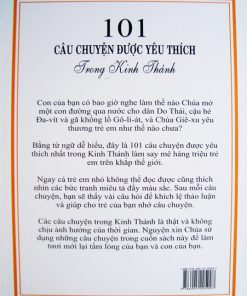 101
CÂU CHUYỆN ĐƯỢC YÊU THÍCH
Trong Kinh Thánh
Con của bạn có bao giờ nghe làm thế nào Chúa mở
một con đường qua nước cho dân Do Thái, cậu bé
Đa-vít và gã khổng lồ Gô-li-át, và Chúa Giê-xu yêu
thương trẻ em như thế nào chưa?
Bằng từ ngữ dễ hiểu, đây là 101 câu chuyện được yêu
thích nhất trong Kinh Thánh làm say mê hàng triệu trẻ
em trên khắp thế giới.
Ngay cả trẻ em nhỏ không thể đọc được cũng thích
nhìn các bức tranh miêu tả đầy màu sắc. Sau mỗi câu
chuyện, bạn sẽ thấy vài câu hỏi để khích lệ thảo luận
và giúp cho trẻ của bạn nhớ câu chuyện.
Các câu chuyện trong Kinh Thánh là thật và không
chịu ảnh hưởng của thời gian. Nguyện xin Chúa sử
dụng những câu chuyện trong cuốn sách này để làm
tươi mới lại tấm lòng của bạn và con của bạn.